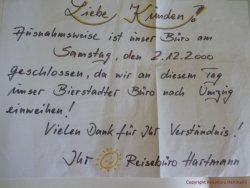 Liebe Kunden!
Ausnahmsweise ist unser Büro am
Samstag, den 2.12.2000
geschlossen, da wir an diesem Tag
unser Bierstadter Büro nach Umzug
einweihen!
Vielen Dank für Ihr Verständnis!
Ihr Reisebüro Hartmann
Copyright Reisebüro Hartmann